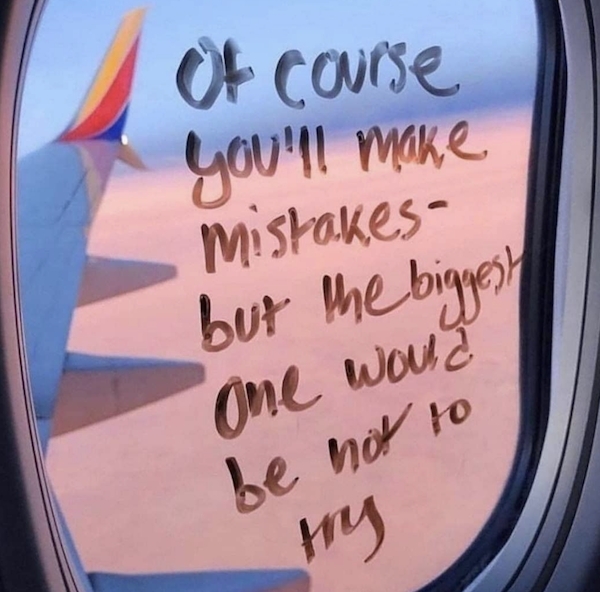 Of course
you'll make
mistakes-
but the biggest
one would
be not to
try